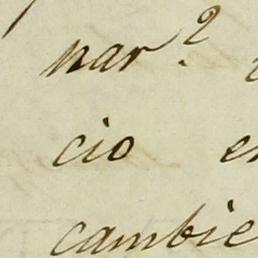 nar?
cio en
cambie